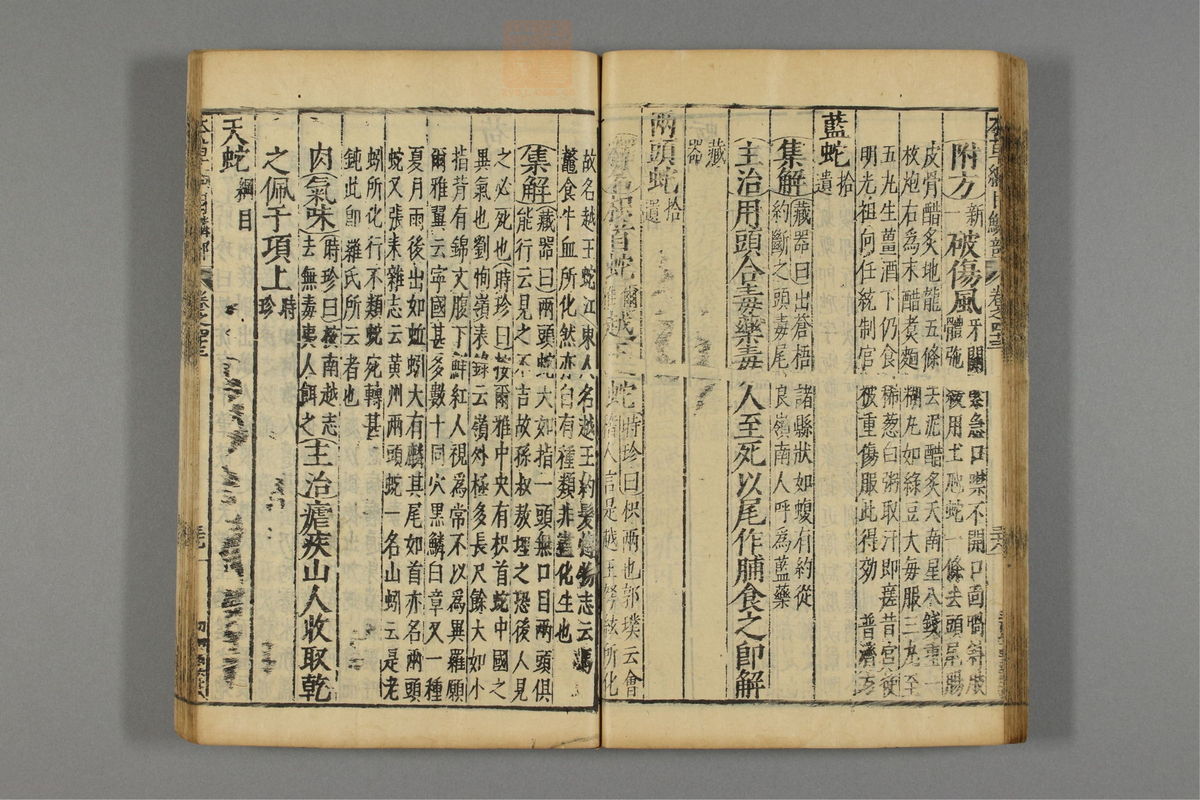 附方新一破傷風牙關緊急口噤不開口面喎斜肢
體弛緩用土虺蛇一條去頭尾腸
皮骨醋炙地龍五條去泥醋炙天南星八錢重一
枚炮右為末醋煮麵糊丸如綠豆大毎服三丸至
五丸生薑酒下仍食稀葱白粥取汗即瘥昔宮使
明光祖向任統制官被重傷服此得効 普濟方
藍蛇拾遺
集解藏器曰出蒼梧諸縣狀如蝮有約從
約斷之頭毒尾良嶺南人呼為藍藥
主治用頭合毒藥毒人至死以尾作脯食之即解
藏器
兩頭蛇拾遺
釋名枳首蛇爾雅越王蛇時珍曰枳兩也郭璞云會
稽人言是越王弩絃所化
故名越王蛇江東人名越王約髮博物志云馬
鼈食牛血所化然亦自有種類非盡化生也
集解藏器曰兩頭蛇大如指一頭無口目兩頭俱
能行云見之不吉故孫叔敖埋之恐後人見
之必死也時珍曰按爾雅中央有枳首蛇中國之
異氣也劉恂嶺表錄云嶺外極多長尺餘大如小
指背有錦文腹下鮮紅人視為常不以為異羅願
爾雅翼云寧國甚多數十同穴黑鱗白章又一種
夏月雨後出如蚯蚓大有鱗其尾如首亦名兩頭
蛇又張耒雜志云黃州兩頭蛇一名山蚓云是老
蚓所化行不類蛇宛轉甚
鈍此即羅氏所云者也
肉氣味時珍曰按南越志
去無毒夷人餌之主治瘧疾山人收取乾
之佩于項上時珍
天蛇綱目